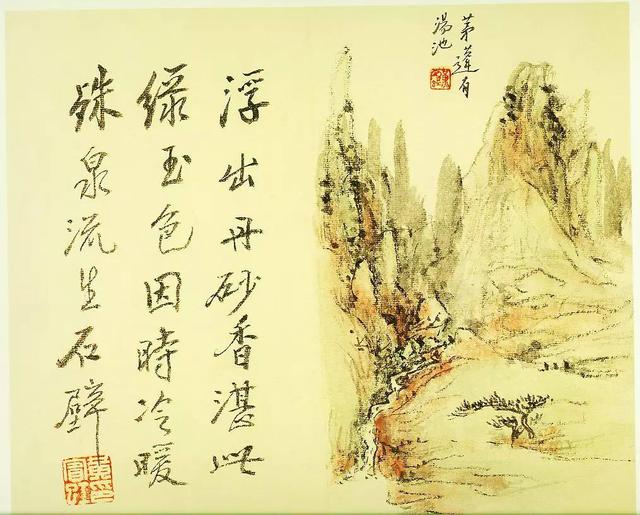 茅蓬有
湯池
浮出丹砂香湛此
綠玉色因時冷暖
殊泉流生石壁